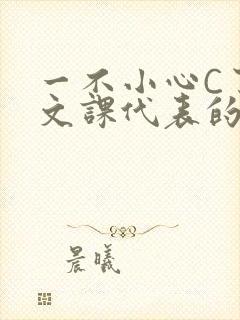 一不小心C
文課代表的
晨曦